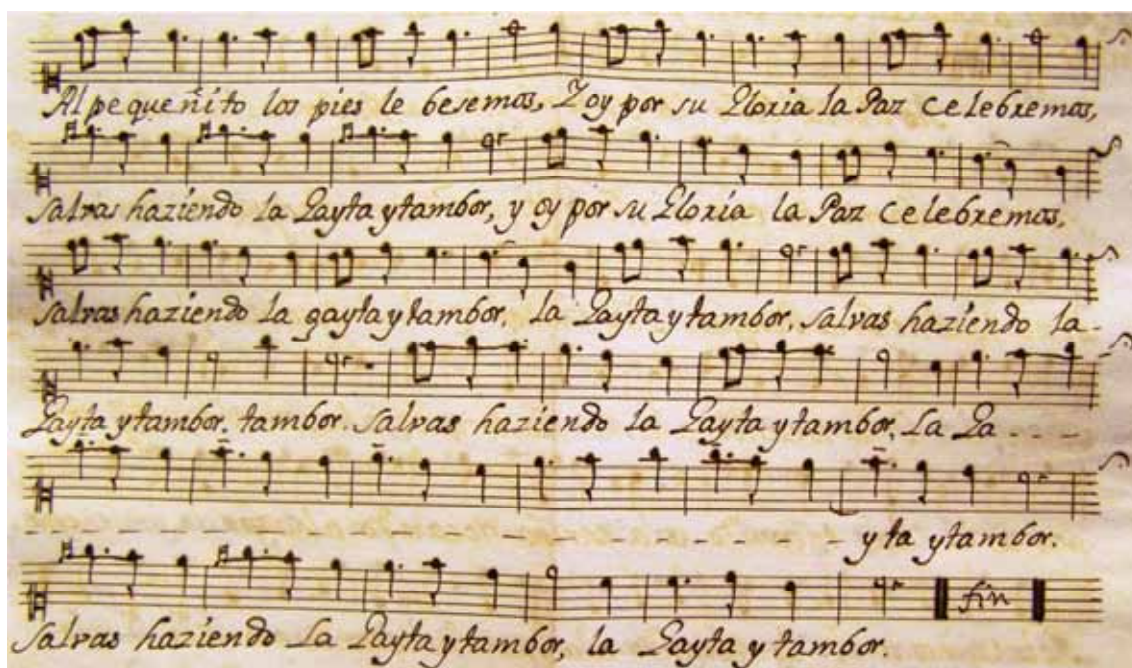 Al pequeñito los pies le besemos, Y oy por su Gloria la Paz celebremos,
salvas haziendo la Gayta y tambor, y oy por su Gloria la Paz celebremos,
salvas haziendo la gayta y tambor, la Gayta y tambor, salvas haziendo la-
Gayta y tambor, tambor. salvas haziendo la Gayta y tambor, La Ga - - - -
yta y tambor.
fin
salvas haziendo La Gayta y tambor, la Gayta y tambor.